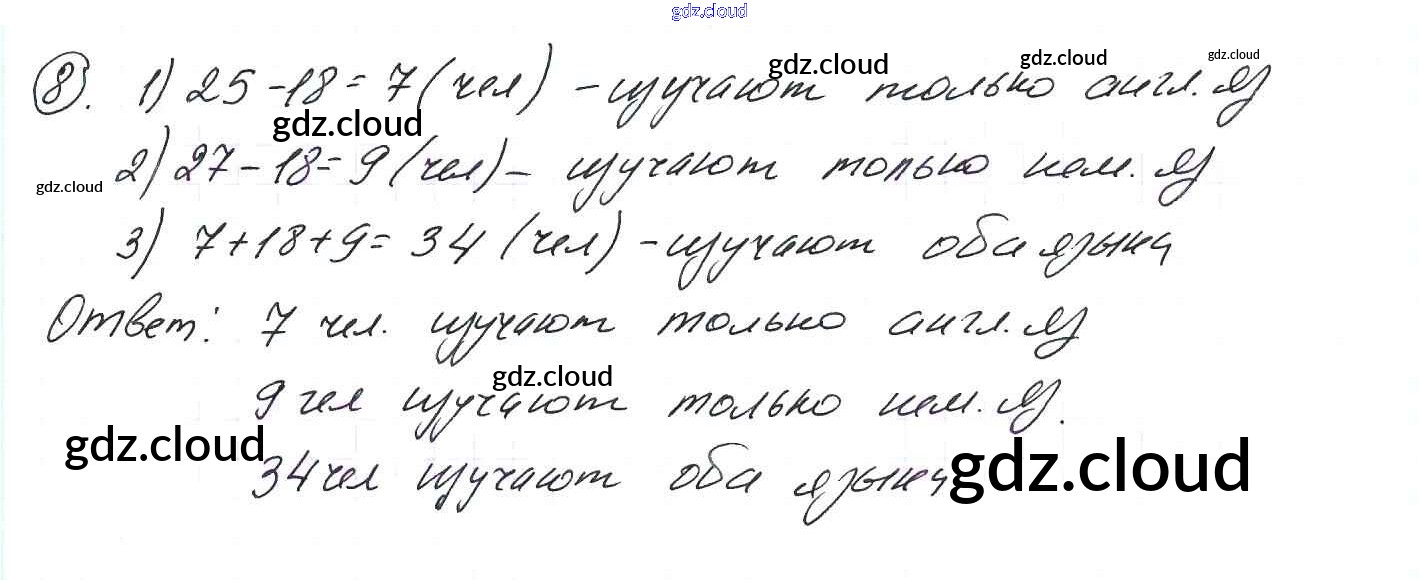 gdz.cloud
8. 1) 25 - 18 = 7 (чел) - изучают только англ. яз
gdz.cloud gdz.cloud gdz.cloud
gdz.cloud
2) 27 - 18 = 9 (чел) - изучают только нем. яз
gdz.cloud
3) 7 + 18 + 9 = 34 (чел) - изучают оба языка
Ответ: 7 чел. изучают только англ. яз
gdz.cloud
9 чел изучают только нем. яз.
gdz.cloud
34 чел изучают оба языка
gdz.cloud